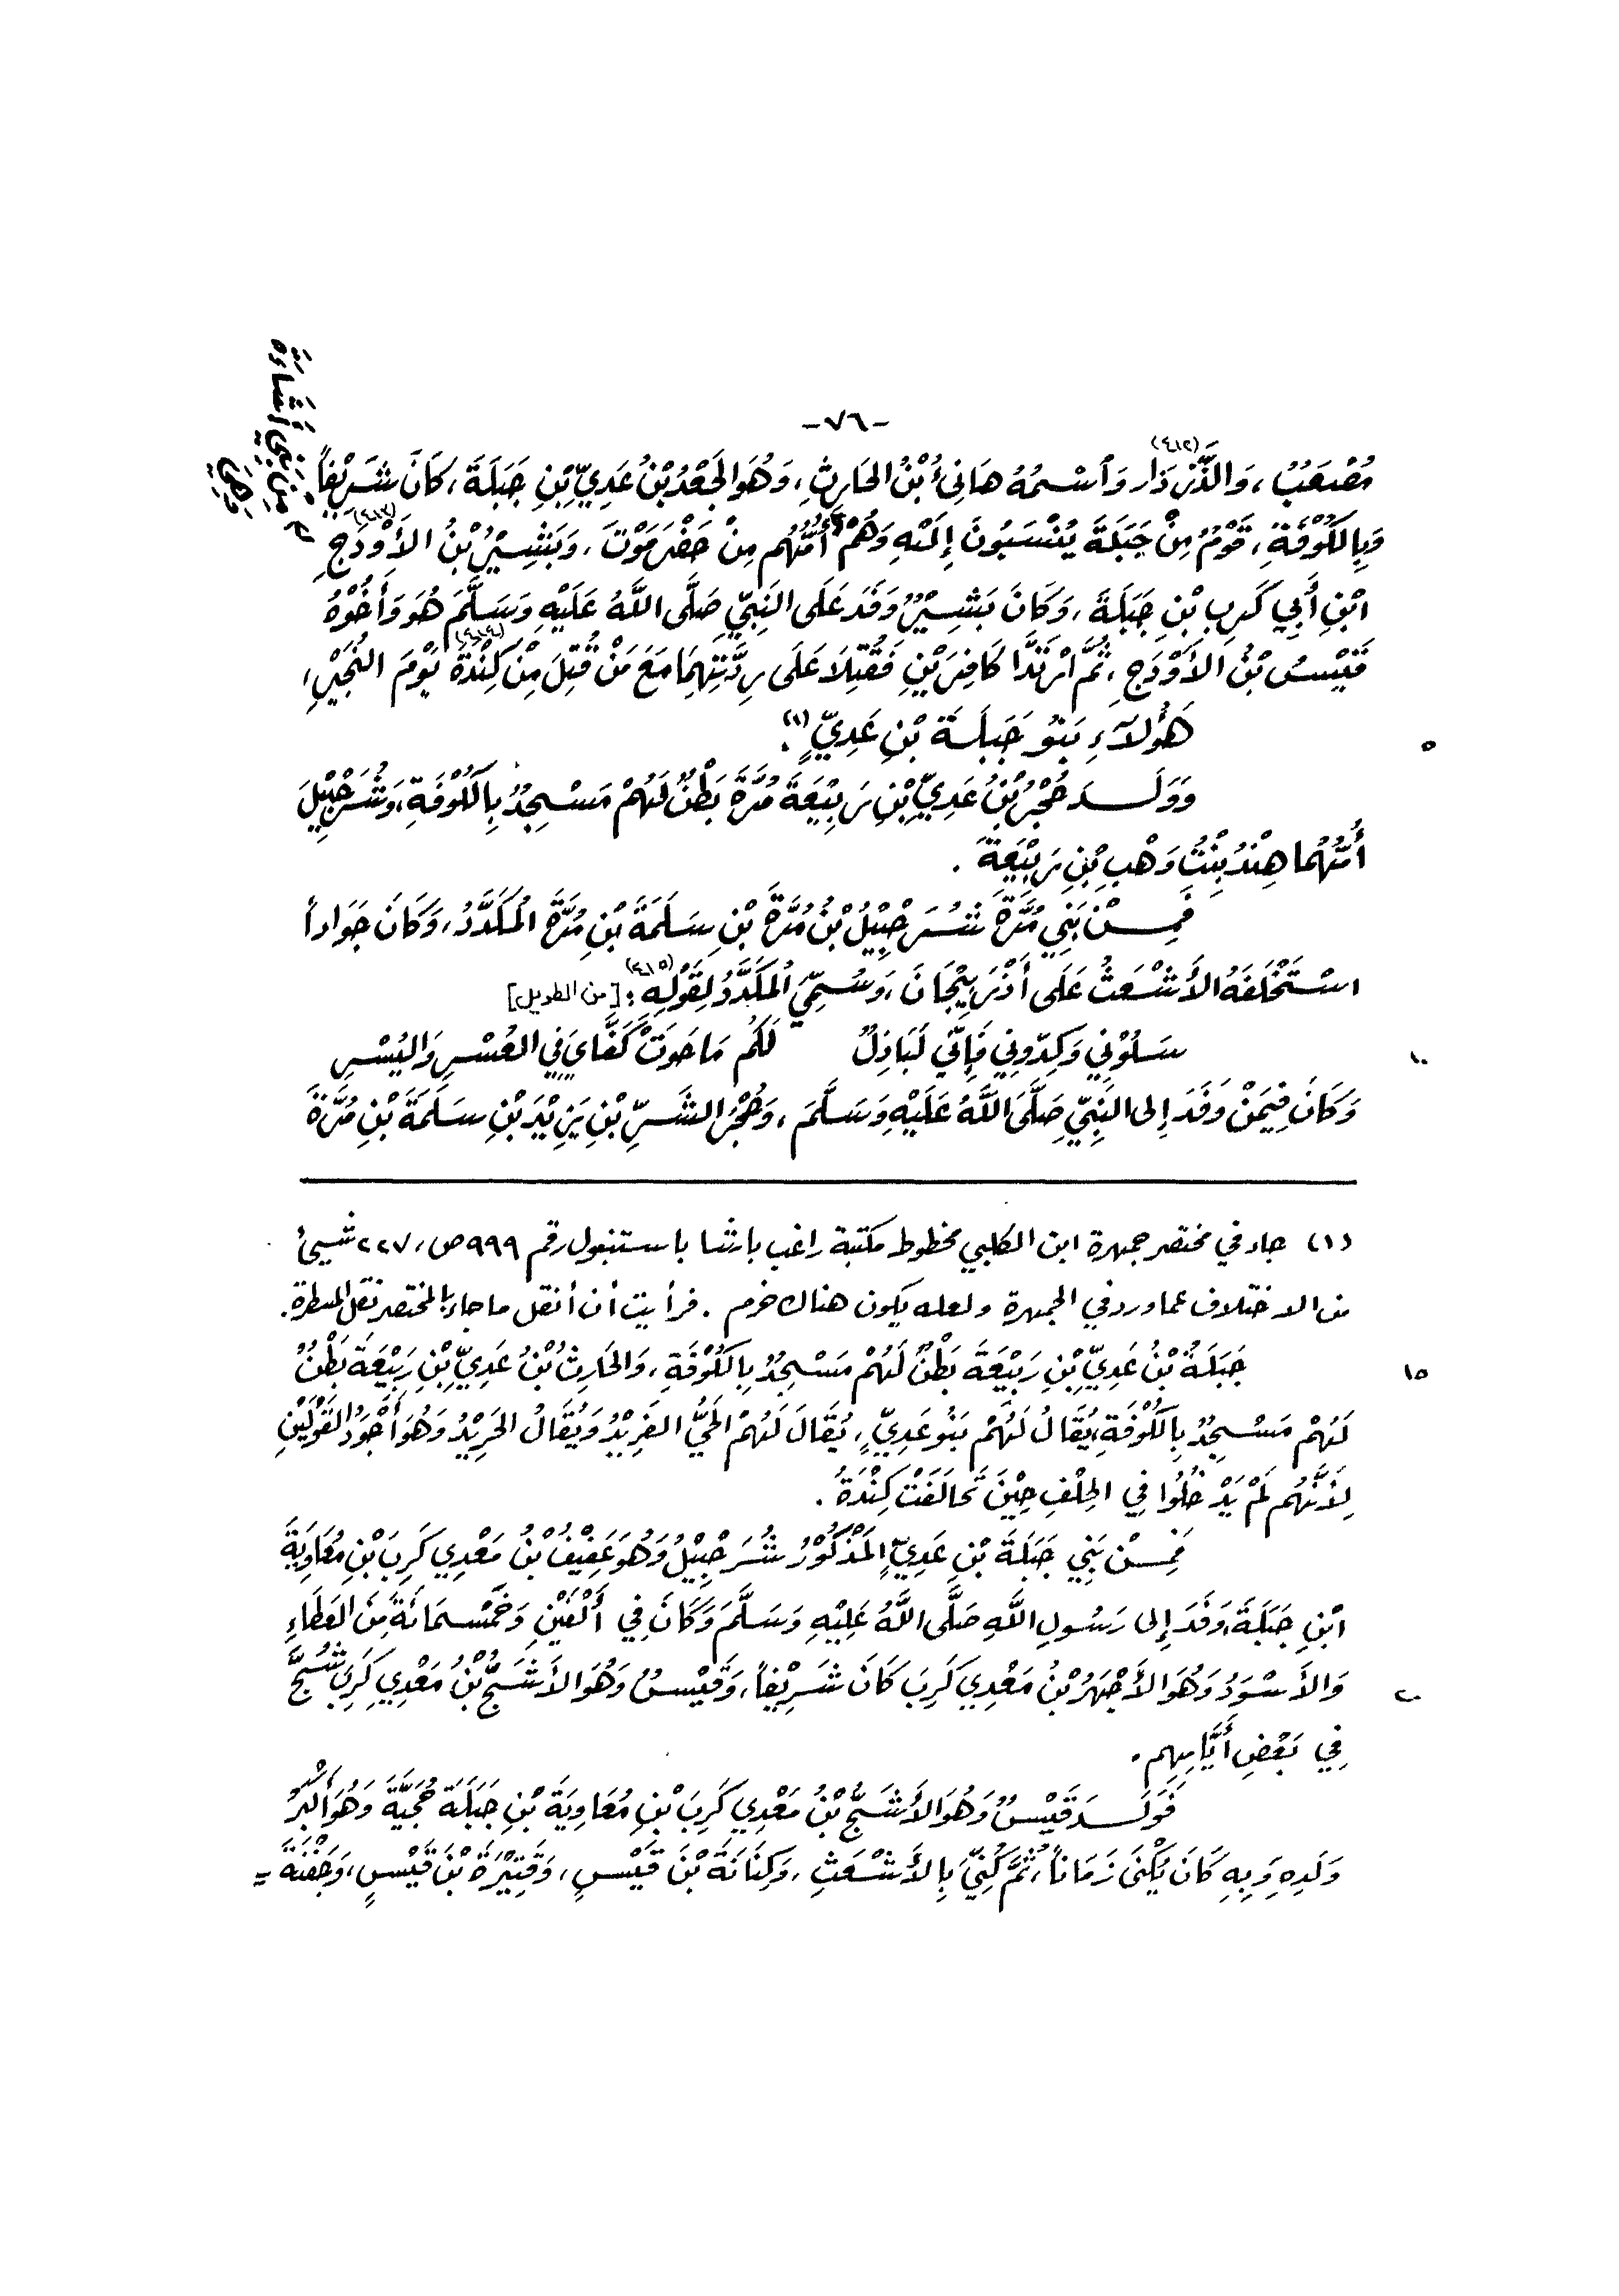 -٧٦-
مُصْعَبٌ، وَالدَّرْدَار(٤١٢) وَٱسْمُهُ هَانِئُ ٱبْنُ الحَارِثِ، وَهُوَ الجَعْدُ بْنُ عَدِيِّ بْنِ جَبَلَةَ، كَانَ شَرِيْفاً،
وَبِالكُوْفَةِ، قَوْمٌ مِنْ جَبَلَةَ يُنْسَبُونَ إِلَيْهِ وَهُمْ أُمُّهُم مِنْ حَضْرَمَوْتَ، وَبَشِيْرُ بْنُ الأَوْدَجِ(٤١٣)
مِنْ بَنِي أُسَاءَةَ
وَهِيَ
ابْنِ أَبِي كَرِبِ بْنِ جَبَلَةَ، وَكَانَ بَشِيْرٌ وَفَدَ عَلَى النَبِيِّ صَلَّى اللَّهُ عَلَيْهِ وَسَلَّمَ هُوَ وَأَخُوْهُ
قَيْسُ بْنُ الأَوْدَجِ، ثُمَّ ارْتَدَّا كَافِرَيْنِ فَقُتِلَا عَلَى رِدَّتِهِمَا مَعَ مَنْ قُتِلَ مِنْ كِنْدَةَ(٤١٤) يَوْمَ النُجَيْرِ،
هَؤُلَآءِ بَنُو جَبَلَةَ بْنِ عَدِيٍّ(١).
٥
وَوَلَدَ حُجْرُ بْنُ عَدِيِّ بْنِ رَبِيْعَةَ مُرَّةَ بَطْنٌ لَهُمْ مَسْجِدٌ بِالكُوْفَةِ، وَشُرَحْبِيْلَ
أُمُّهُمَا هِنْدُ بِنْتُ وَهْبِ بْنِ رَبِيْعَةَ.
فَمِنْ بَنِي مُرَّةَ شُرَحْبِيْلُ بْنُ مُرَّةَ بْنِ سَلَمَةَ بْنِ مُرَّةَ المُكَدَّدُ، وَكَانَ جَوَاداً
اسْتَخْلَفَهُ الأَشْعَثُ عَلَى أَذْرَبِيْجَانَ، وَسُمِّيَ المُكَدَّدُ لِقَوْلِهِ(٤١٥): [من الطويل]
سَلُوْنِي وَكِدّونِي فَإِنّي لَبَاذِلٌ لَكُم مَا حَوَتْ كَفَّايَ فِي العُسْرِ وَاليُسْرِ
١٠
وَكَانَ فِيَمَنْ وَفَدَ إِلى النَبِيّ صَلَّى اللَّهُ عَلَيْهِ وَسَلَّمَ، وَحُجْرُ الشَرِّ بْنِ يَزِيْدَ بْنِ سَلَمَةَ بْنِ مُرَّةَ
(١) جاء في مختصر جمهرة ابن الكلبي مخطوط مكتبة راغب باشا باستنبول رقم ٩٩٩ ص، ٢٢٧ شيئ
من الاختلاف عما ورد في الجمهرة ولعله يكون هناك خرم. فرأيت أن أنقل ما جاء بالمختصر نقل المسطرة.
جَبَلَةُ بْنُ عَدِيِّ بْنِ رَبِيْعَةَ بَطْنٌ لَهُمْ مَسْجِدٌ بِالكُوْفَةِ، وَالحَارِثُ بْنُ عَدِيِّ بْنِ رَبِيْعَةَ بَطْنٌ
١٥
لَهُمْ مَسْجِدٌ بِالكُوْفَةِ، يُقَالُ لَهُمْ بَنُو عَدِيٍّ، يُقَالَ لَهُمْ الحَيُّ الفَرِيْدُ وَيُقَالُ الحَرِيْدُ وَهُوَ أَجْوَدُ القَوْلَيْنِ
لِأَنَّهُم لَمْ يَدْخُلُوا فِي الحِلْفِ حِيْنَ تَحَالَفَتْ كِنْدَةُ.
فَمِنْ بَنِي جَبَلَةَ بْنِ عَدِيٍّ المَذكُوْرُ شُرَحْبِيْلُ وَهُوَ عَفِيْفُ بْنُ مَعْدِي كَرِبَ بْنِ مُعَاوِيَةَ
ابْنِ جَبَلَةَ، وَفَدَ إِلى رَسُولِ اللَّهِ صَلَّى اللَّهُ عَلَيْهِ وَسَلَّمَ وَكَانَ فِي أَلْفَيْنِ وَخَمْسمَائَةً مِنَ العَطَاءِ
وَالأَسْوَدُ وَهُوَ الأَجْهَرُ بْنُ مَعْدِي كَرِبَ كَانَ شَرِيْفاً، وَقَيْسُ وَهُوَ الأَشَجُّ بْنُ مَعْدِي كَرِبَ شُجَّ
٢٠
فِي بَعْضِ أَيَّامِهِم.
فَوَلَدَ قَيْسٌ وَهُوَ الأَشَجُّ بْنُ مَعْدِي كَرِبَ بْنِ مُعَاوِيَةَ بْنِ جَبَلَةَ حُجَيَّةَ وَهُوَ أَكْبَرُ
وَلَدِهِ وَبِهِ كَانَ يُكْنَى زَمَاناً، ثُمَّ كُنِّيَ بِالأَشْعَثِ، وَكِنَانَةَ بْنَ قَيْسٍ، وَقَتِيْرَةَ بْنَ قَيْسٍ، وَجَفْنَةَ =